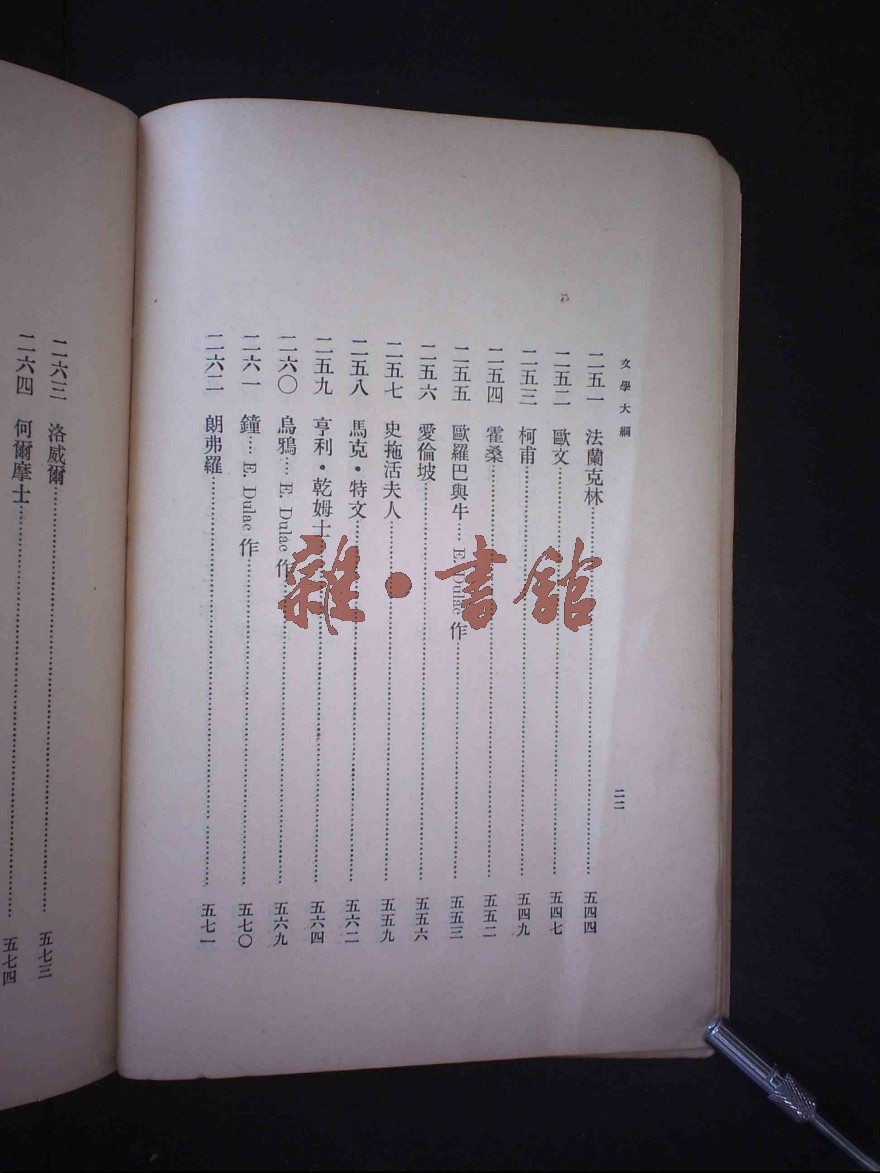 文學大綱
二二
二五一 法蘭克林……五四四
二五二 歐文……五四七
二五三 柯甫……五四九
二五四 霍桑……五五二
二五五 歐羅巴與牛……E. Dulac 作……五五三
二五六 愛倫坡……五五六
二五七 史拖活夫人……五五九
二五八 馬克·特文……五六二
二五九 亨利·乾姆士……五六四
二六〇 烏鴉……E. Dulac 作……五六九
二六一 鐘……E. Dulac 作……五七〇
二六二 朗弗羅……五七一
二六三 洛威爾……五七三
二六四 何爾摩士……五七四
雜·書館